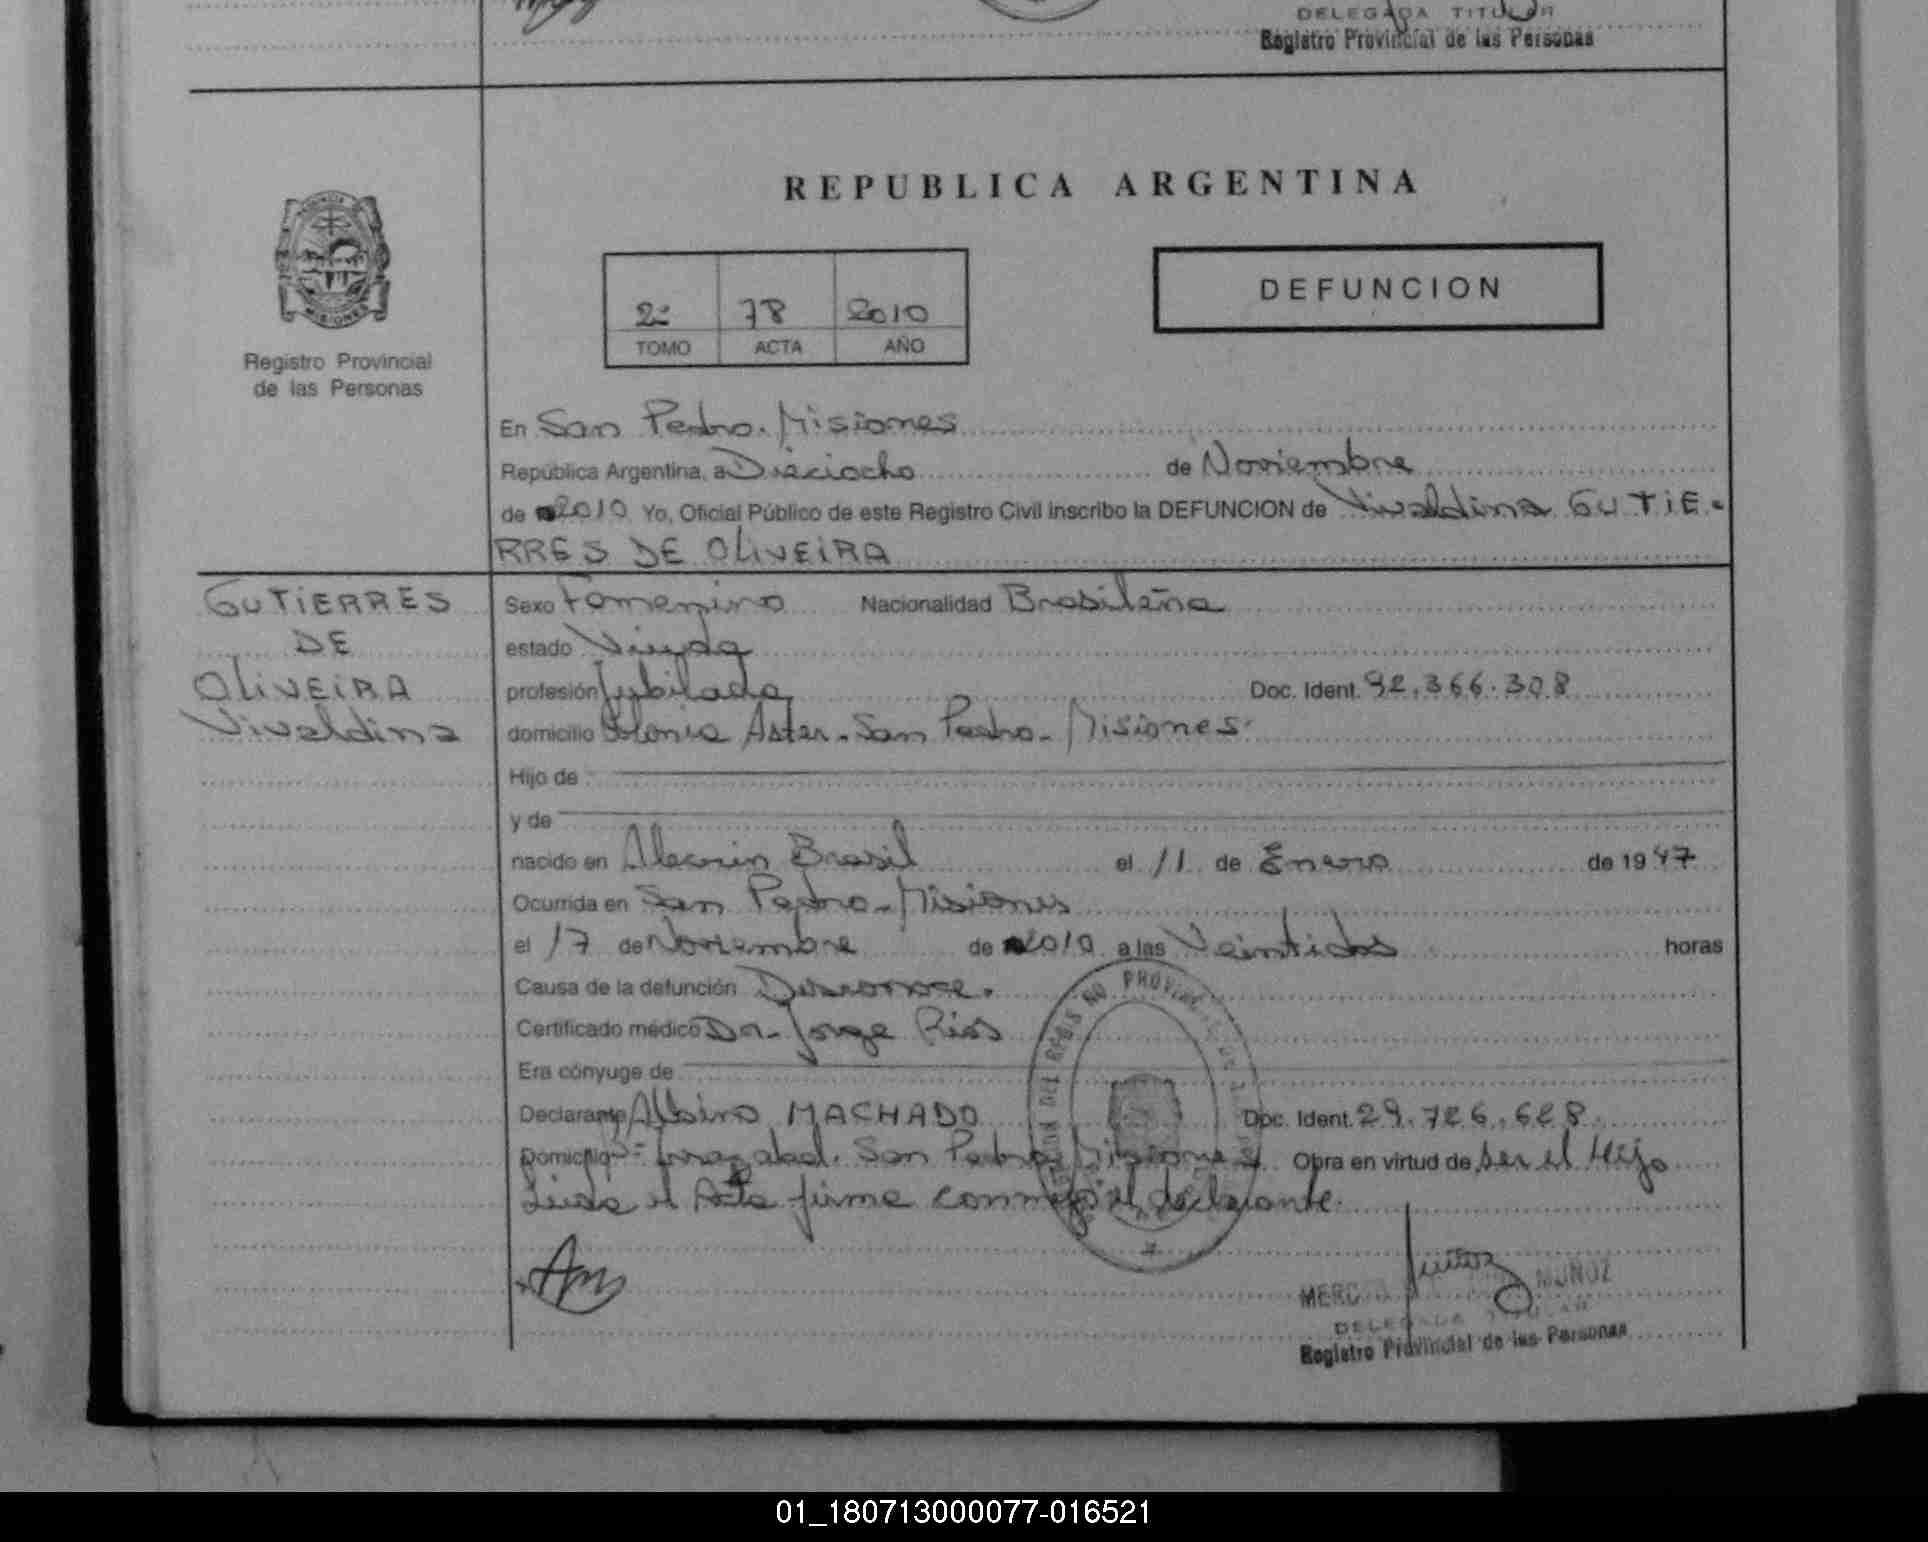 DELEGADA TITULAR
Registro Provincial de las Personas
REPUBLICA ARGENTINA
PROVINCIA
MISIONES
2º 78 2010
TOMO ACTA AÑO
DEFUNCION
Registro Provincial
de las Personas
En San Pedro. Misiones
República Argentina, a Dieciocho de Noviembre
de 2010 Yo, Oficial Público de este Registro Civil inscribo la DEFUNCION de Vivaldina GUTIE-
RRES DE OLIVEIRA
GUTIERRES
DE
OLIVEIRA
Vivaldina
Sexo Femenino Nacionalidad Brasileña
estado Viuda
profesión Jubilada Doc. Ident. 92.366.308
domicilio Colonia Aster. San Pedro - Misiones.
Hijo de
y de
nacido en Alecrin Brasil el 11 de Enero de 1947
Ocurrida en San Pedro - Misiones
el 17 de Noviembre de 2010 a las Veintidos horas
Causa de la defunción Desconoce.
Certificado médico Dr. Jorge Rios
Era cónyuge de
Declarante Albino MACHADO Doc. Ident. 29.726.628
Domicilio Bº Irrazabal. San Pedro Misiones Obra en virtud de ser el Hijo
Leida el Acta firma conmigo el declarante.
MERC MUÑOZ
DELEGADA TITULAR
Registro Provincial de las Personas
01_180713000077-016521